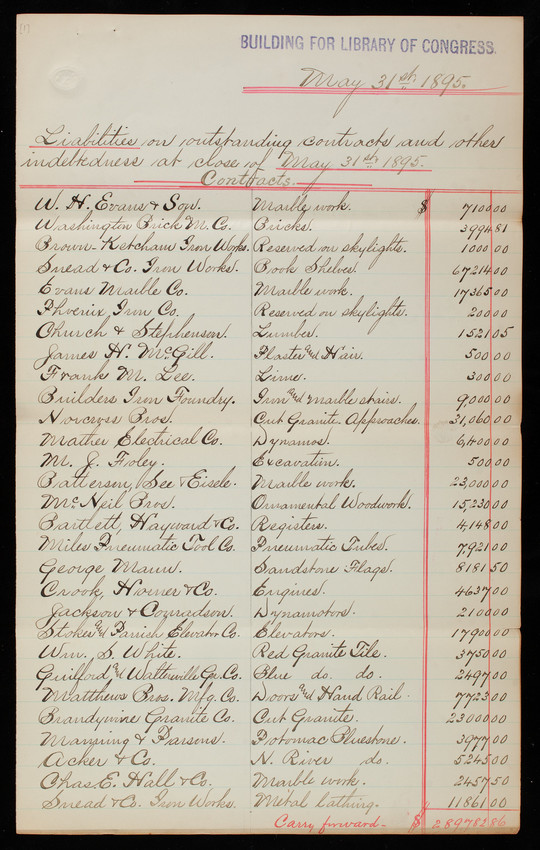 BUILDING FOR LIBRARY OF CONGRESS.
May 31st 1895.
Liabilities on outstanding contracts and other
indebtedness at close of May 31st 1895.
Contracts.
W. H. Evans & Son. Marble work. $ 710000
Washington Brick M. Co. Bricks. 399481
Brown-Ketcham Iron Works. Reserved on skylights. 100000
Snead & Co. Iron Works. Book Shelves. 6721400
Evans Marble Co. Marble work. 1736500
Phoenix Iron Co. Reserved on skylights. 20000
Church & Stephenson. Lumber. 152105
James H. McGill. Plaster and Hair. 50000
Frank M. Lee. Lime. 30000
Builders Iron Foundry. Iron and marble stairs. 9,00000
Norcross Bros. Cut Granite Approaches. 31,06000
Mather Electrical Co. Dynamos. 6,40000
M. J. Foley. Excavation. 50000
Batterson, See & Eisele. Marble work. 23,00000
McNeil Bros. Ornamental Woodwork. 15,23000
Bartlett, Hayward & Co. Registers. 4,14800
Miles Pneumatic Tool Co. Pneumatic Tubes. 792100
George Mann. Sandstone Flags. 818150
Crook, Horner & Co. Engines. 463700
Jackson & Conradson. Dynamotors. 210000
Stokes and Parrish Elevator Co. Elevators. 179000
Wm. S. White. Red Granite Tile. 375000
Guilford and Waltersville Gr. Co. Blue do. do. 249700
Matthews Bros. Mfg. Co. Doors and Hand Rail. 772300
Brandywine Granite Co. Cut Granite. 2300000
Manning & Parsons. Potomac Bluestone. 397700
Acker & Co. N. River do. 524500
Chas. E. Hall & Co. Marble work. 245750
Snead & Co. Iron Works. Metal lathing. 1186100
Carry forward. $ 28978286